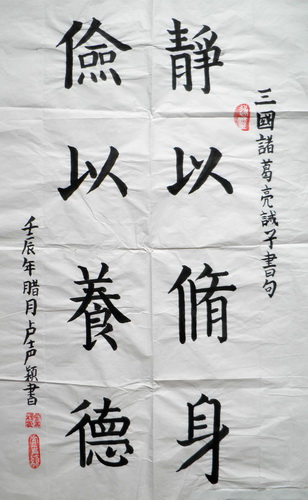 三國諸葛亮誡子書句
靜以脩身
儉以養德
壬辰年腊月卢声颖書